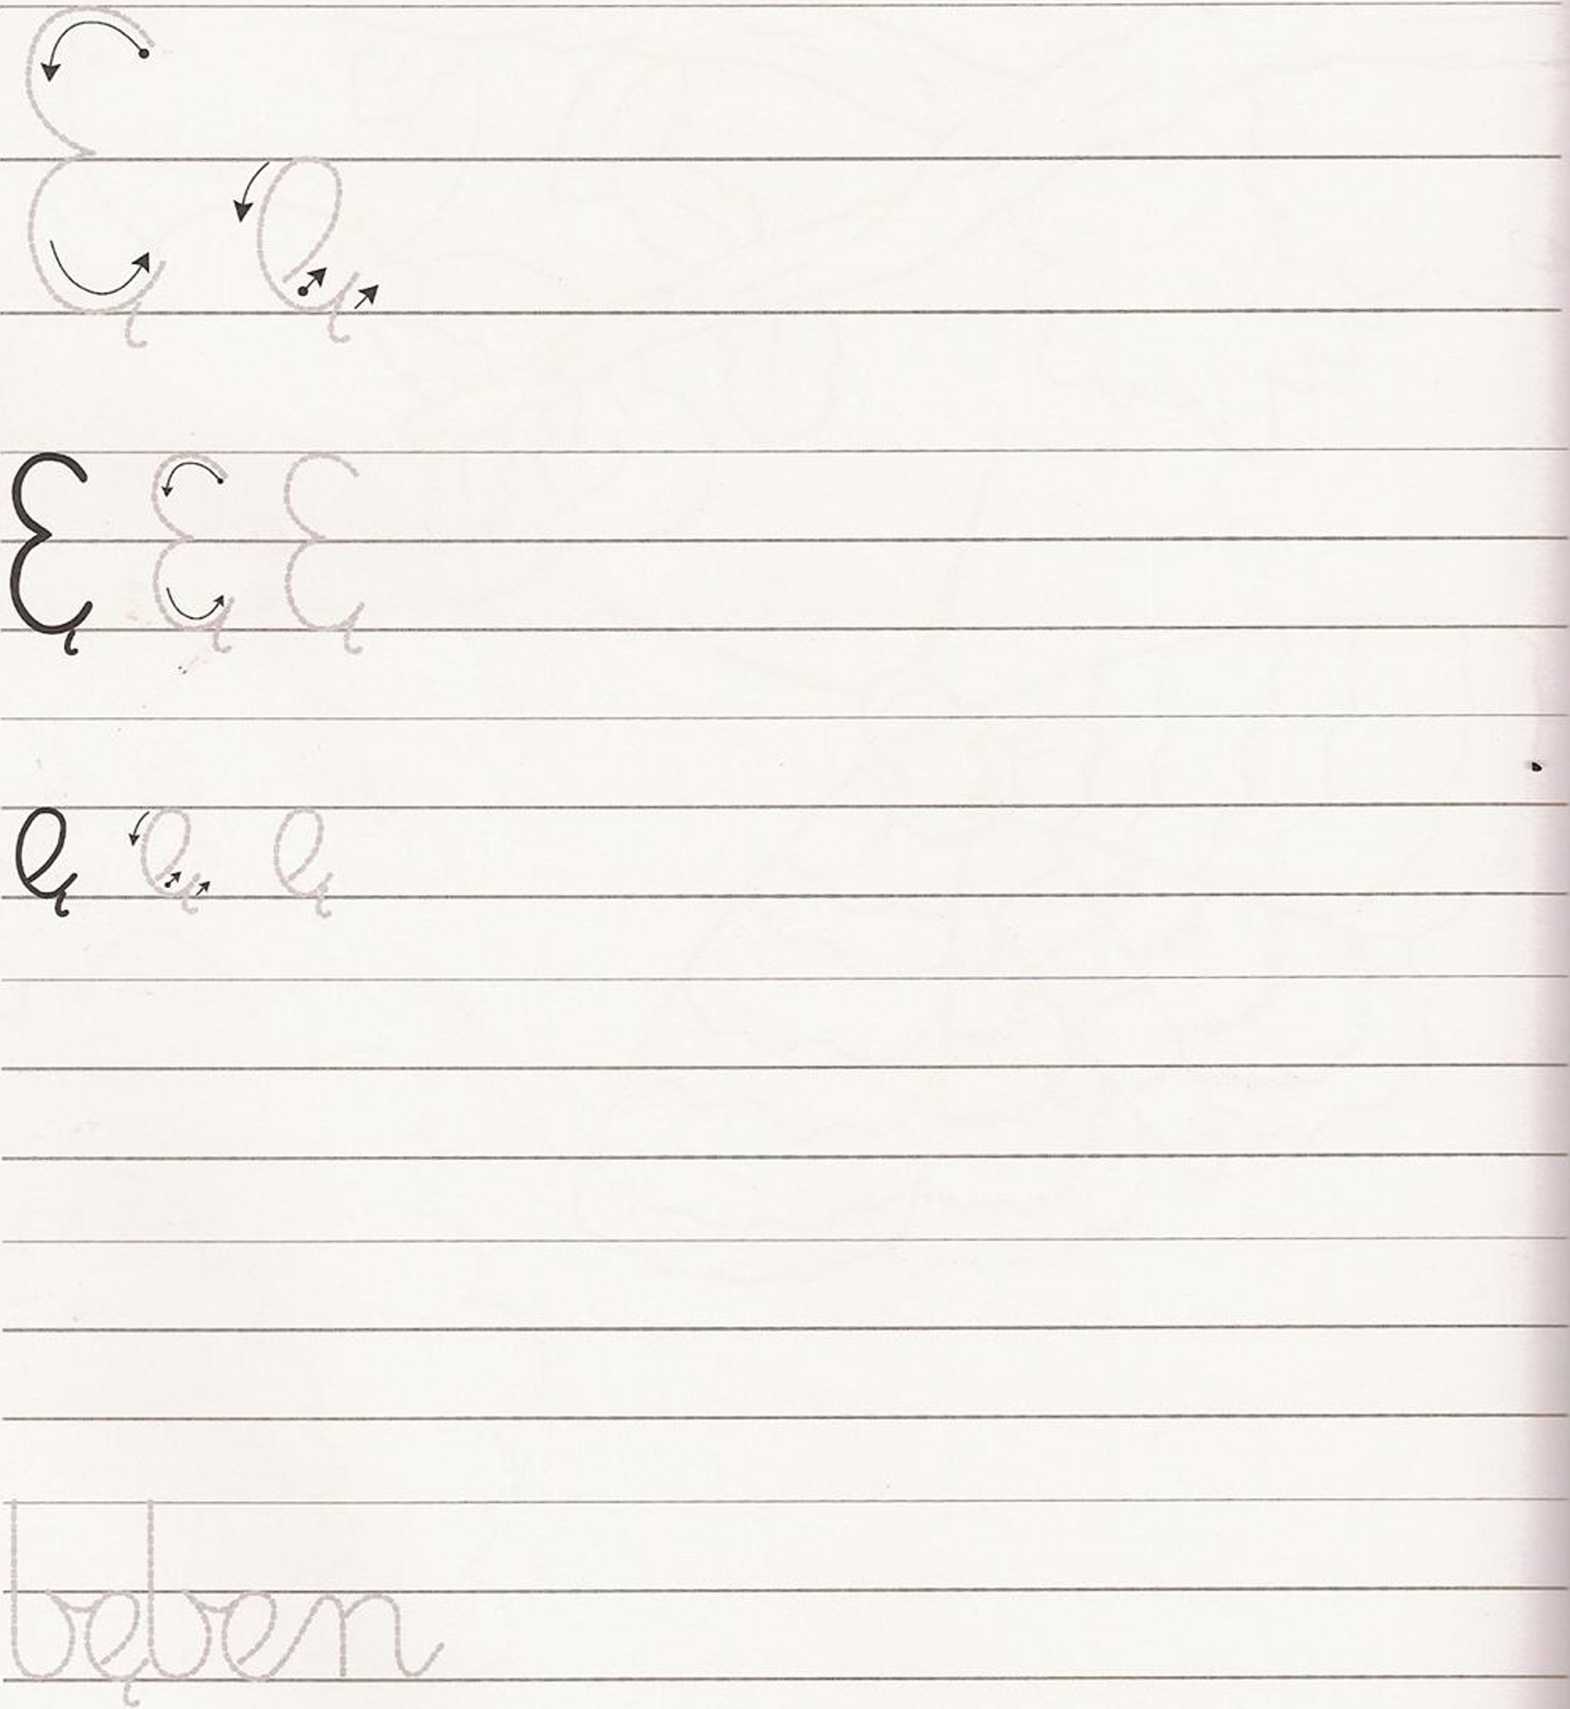 Ę ę
Ę Ę Ę
ę ę ę
bęben